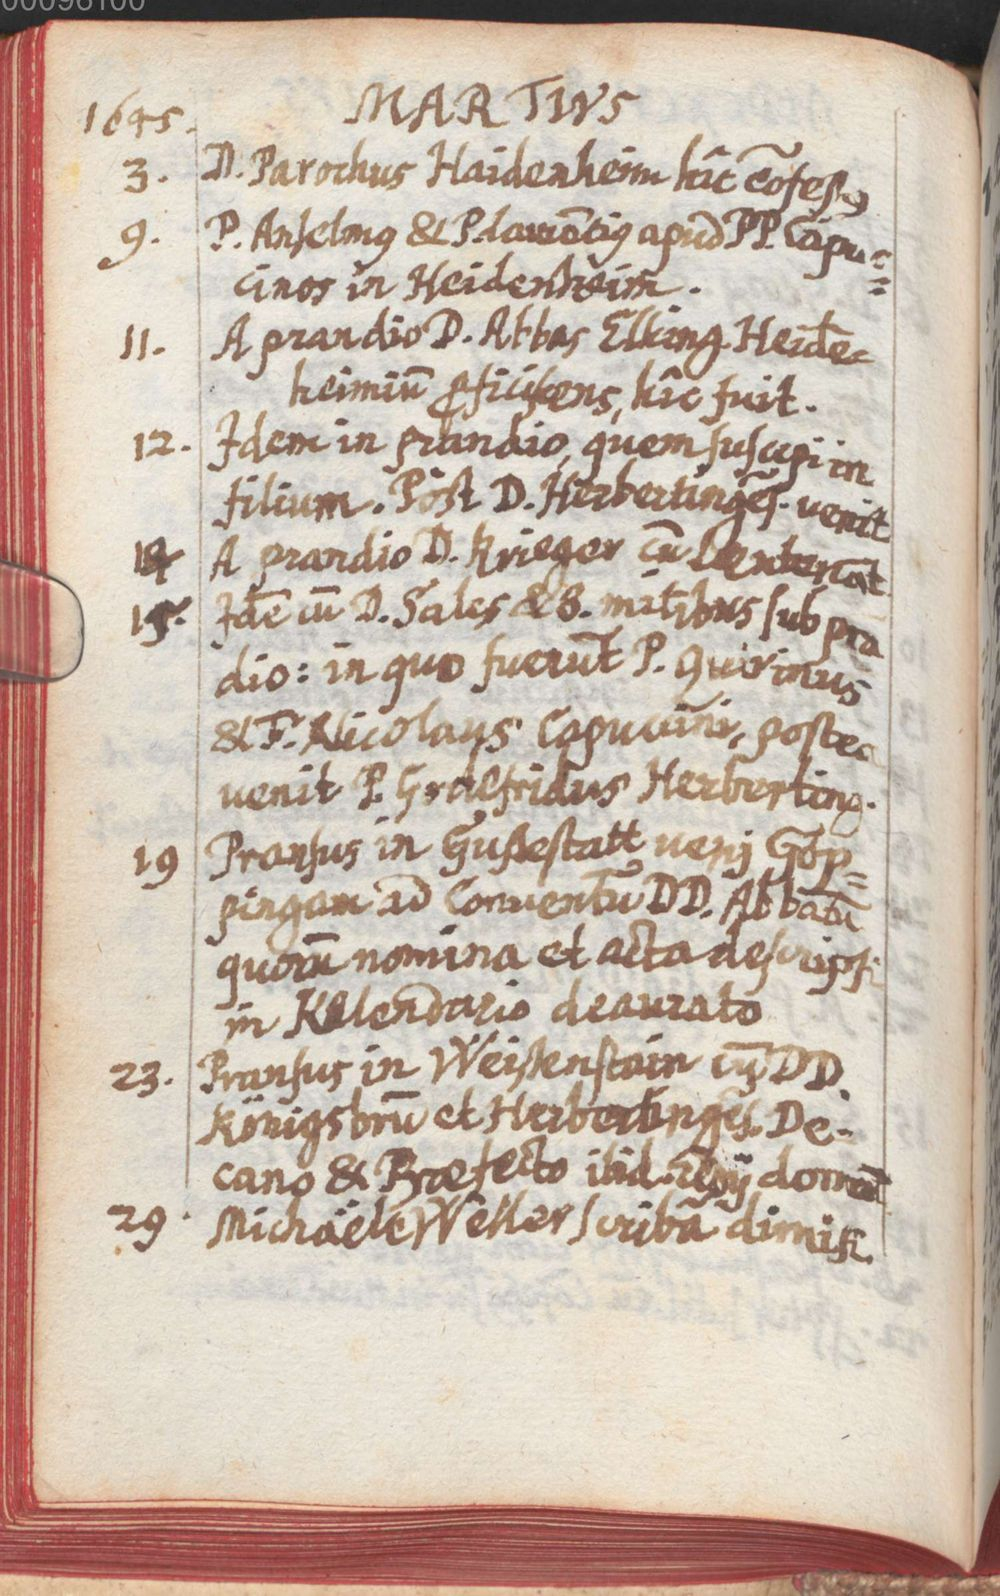 00096100
1645. MARTIVS
3. D. Parochus Haidenheim hîc cõfessꝰ
9. P. Anselmꝰ & P. laurẽtiꝰ apud PP. Capu=
cinos in Heidenheim.
11. A prandio D. Abbas Elking. Heidẽ=
heimiũ ꝓficiscens, hîc fuit.
12. Idem in prandio, quem suscepi in
filium. Post D. Herbertingẽs. venit
14 A prandio D. Krieger cũ
15. Idẽ cũ D. Sales & 8. militibus sub prã
dio: in quo fuerũt P. Quirinus
& F. Nicolaus Capucini, postea
venit P. Herberting.
19 Pransus in Gussestatt venj Göp=
pingam ad Conventũ DD. Abbatũ
quorũ nomina et acta descripsi
in Kalendario deaurato
23. Pransus in Weissenstain cũ DD.
Königsbrũ et Herbertingẽs. De=
cano & Præfecto ibid. domũ
29. Michaële Weller scribã dimisi.